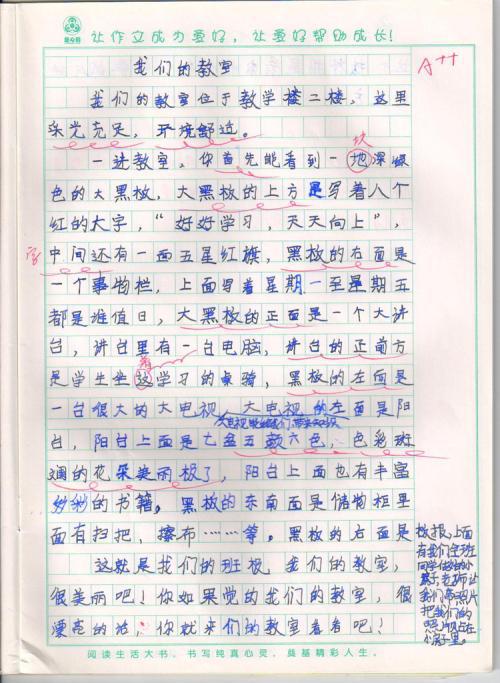 让作立成为爱好，让爱好帮助成长！
A++
我们的教室
我们的教室位于教学楼二楼，这里
采光充足，环境舒适。
块
一进教室，你首先能看到一地深绿
色的大黑板，大黑板的上方是写着八个
红的大字，“好好学习，天天向上”，
中间还有一面五星红旗，黑板的右面是
一个事物栏，上面写着星期一至星期五
都是谁值日，大黑板的正面是一个大讲
台，讲台里有一台电脑，讲台的正前方
着
是学生坐这学习的桌骑，黑板的左面是
一台很大的大电视，大电视的左面是阳
台，阳台上面是七盆五颜六色，色彩斑
斓的花采美丽极了，阳台上面也有丰富
的书籍。黑板的东南面是储物柜里
面有扫把，擦布……等。黑板的右面是
板报，上面
有我们全班
同学做的小
让
我们
照片
把我们的
照片贴在
小房子里。
这就是我们的班极 我们的教室，
很美丽吧！你如果觉的我们的教室，很
漂亮的话，你就来们的教室看看吧！
阅读生活大书，书写纯真心灵，奠基精彩人生。